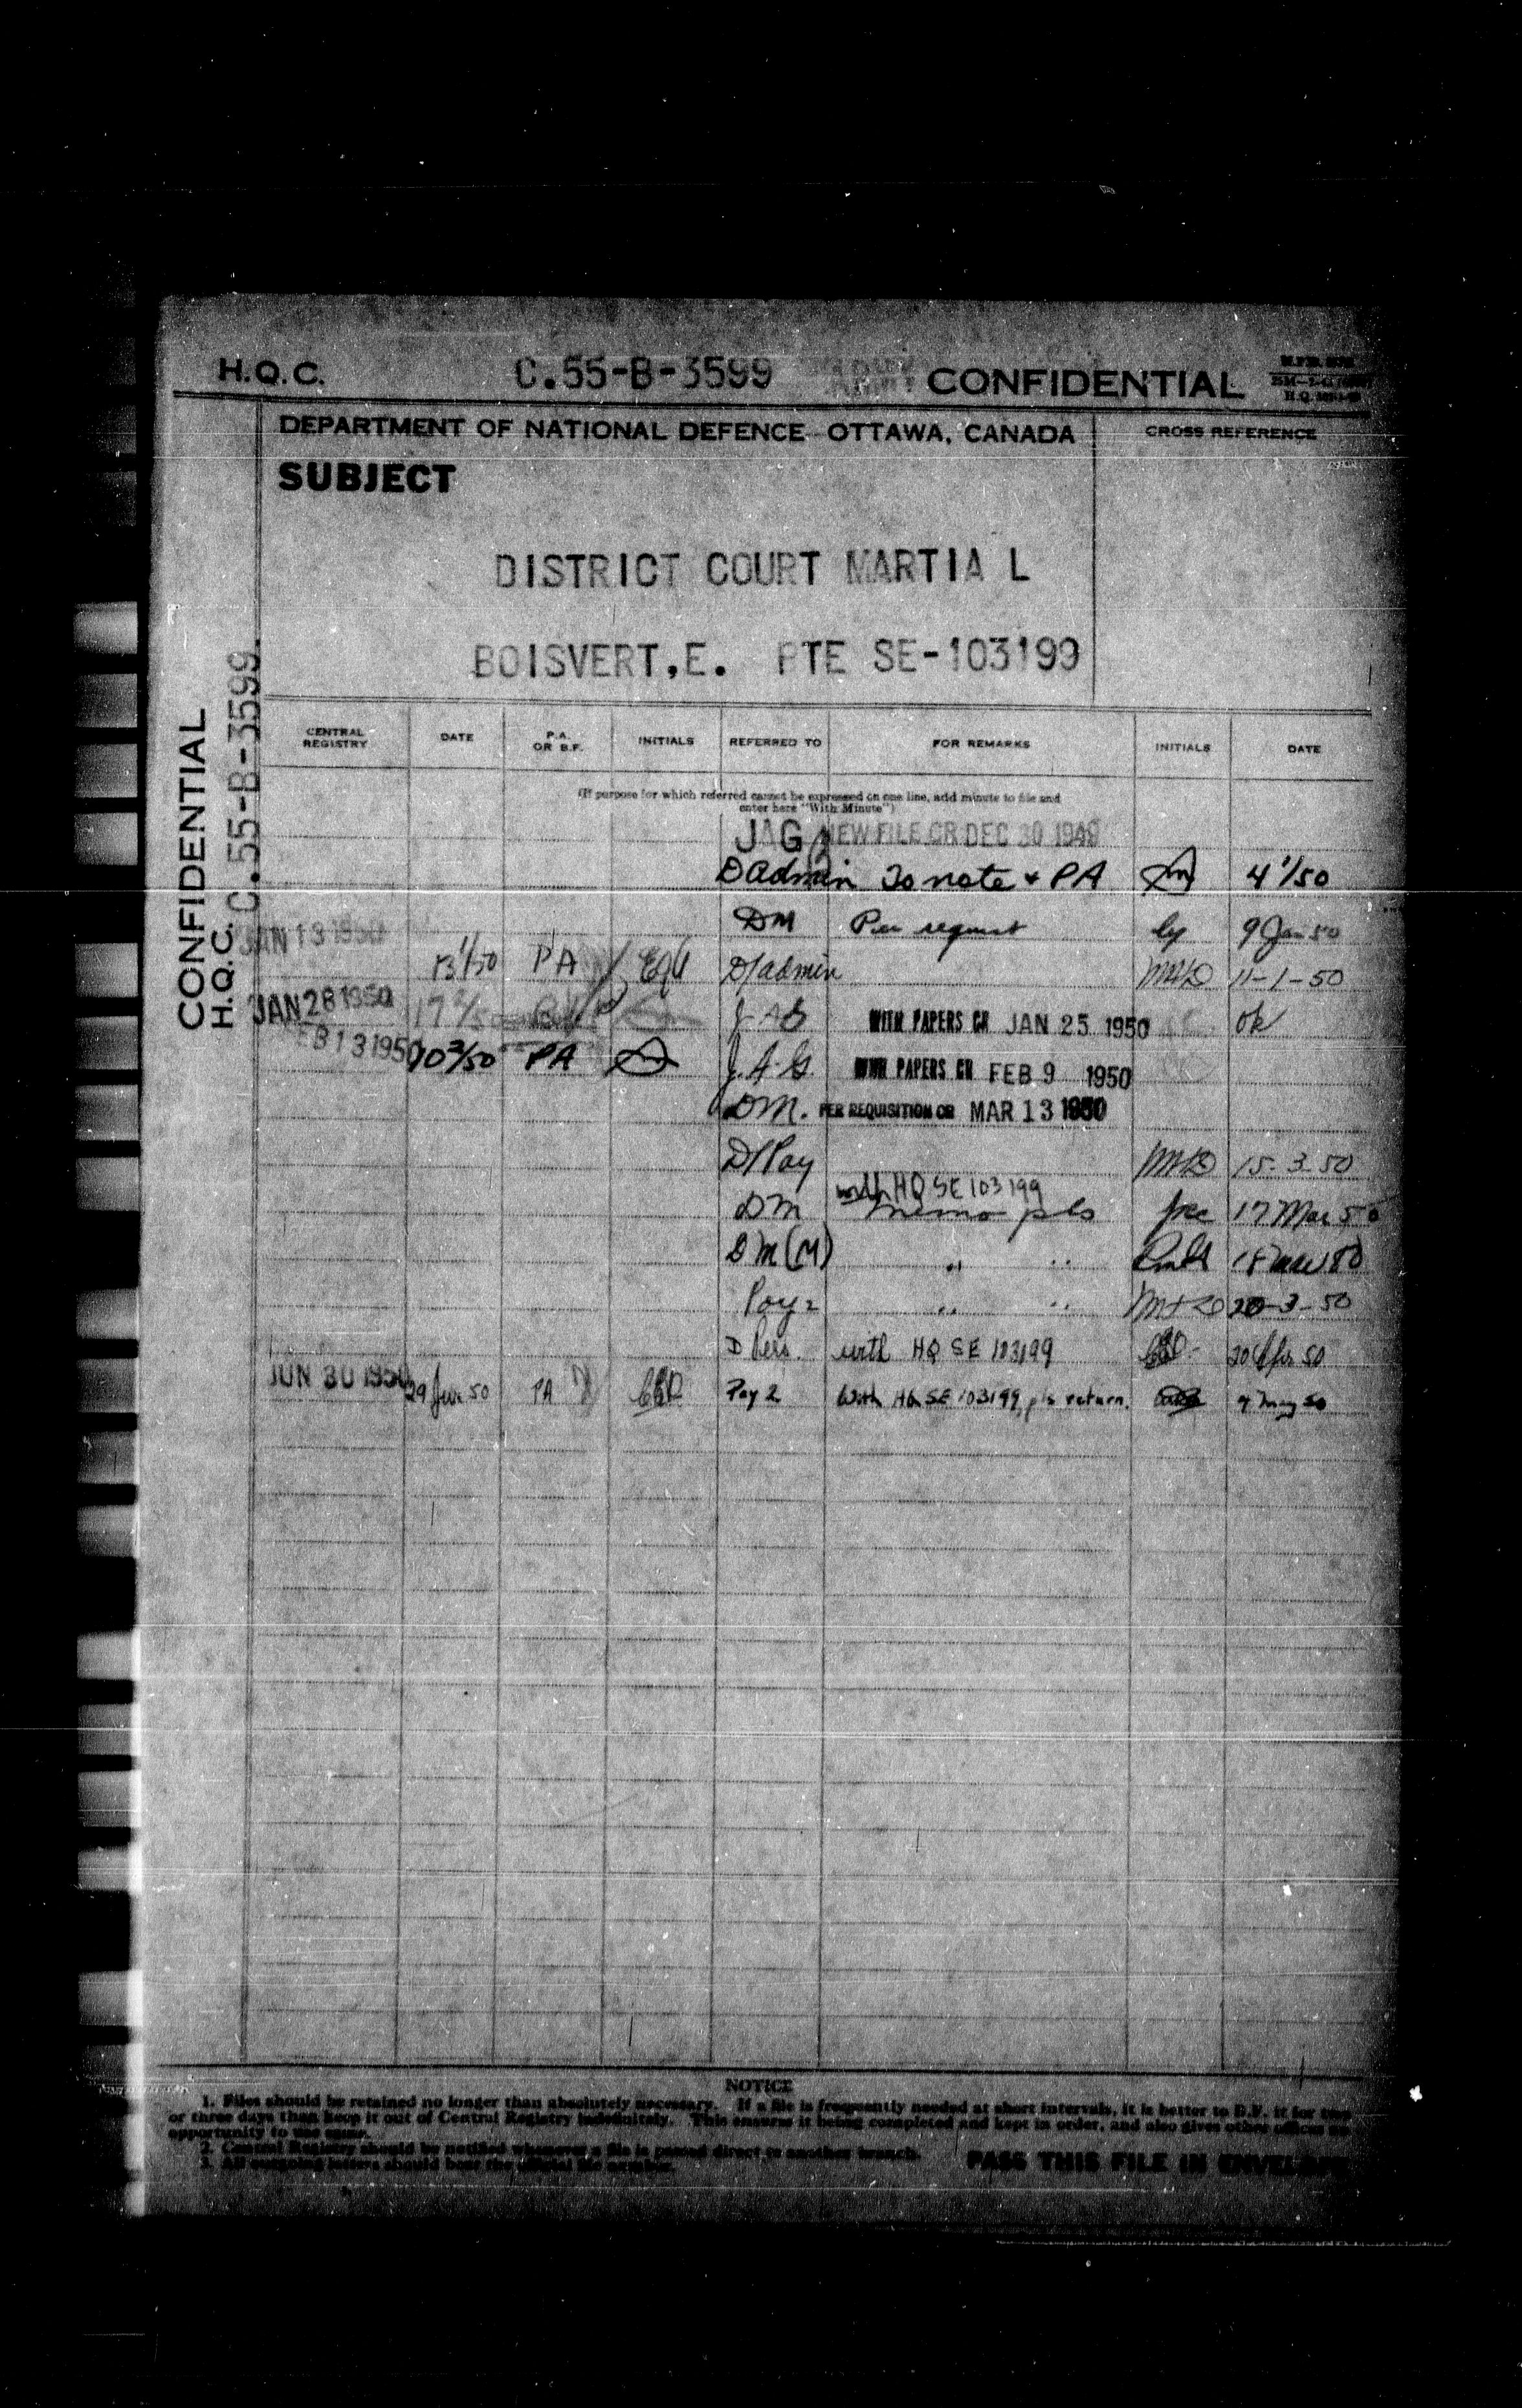 H.Q.C. C.55-B-3599 CONFIDENTIAL
DEPARTMENT OF NATIONAL DEFENCE OTTAWA, CANADA
CROSS REFERENCE
SUBJECT
DISTRICT COURT MARTIA L
BOISVERT,E. PTE SE-103199
CONFIDENTIAL
H.Q.C. C.55-B-3599.
CENTRAL REGISTRY DATE P.A. OR B.F. INITIALS REFERRED TO FOR REMARKS INITIALS DATE
(If purpose for which referred cannot be expressed on one line, add minute to file and
enter here "With Minute")
JAG NEW FILE CR DEC 30 1949
D Admin To note & PA 4 1/50
DM Per request 9 Jan 50
JAN 13 1950 13 1/50 PA D/admin 11-1-50
JAN 28 1950 17 2/50 JAG WITH PAPERS CR JAN 25 1950 ok
FEB 13 1950 10 2/50 PA J.A.G. WITH PAPERS CR FEB 9 1950
DM. PER REQUISITION CR MAR 13 1950
D/Pay 15-3-50
with HQ SE 103199
DM memo pls 17 Mar 50
DM(M) " " 18 Mar 50
Pay 2 " " 20-3-50
D Pers. with HQ SE 103199 20 Apr 50
JUN 30 1950 29 Jun 50 PA Pay 2 With HQ SE 103199, pls return. 9 May 50
NOTICE
1. Files should be retained no longer than absolutely necessary. If a file is frequently needed at short intervals, it is better to B.F. it for two
or three days than keep it out of Central Registry indefinitely. This ensures it being completed and kept in order, and also gives other offices an
opportunity to use same.
2. Central Registry should be notified whenever a file is passed direct to another branch.
3. All outgoing letters should bear the official file number.
PASS THIS FILE IN ENVELOPE